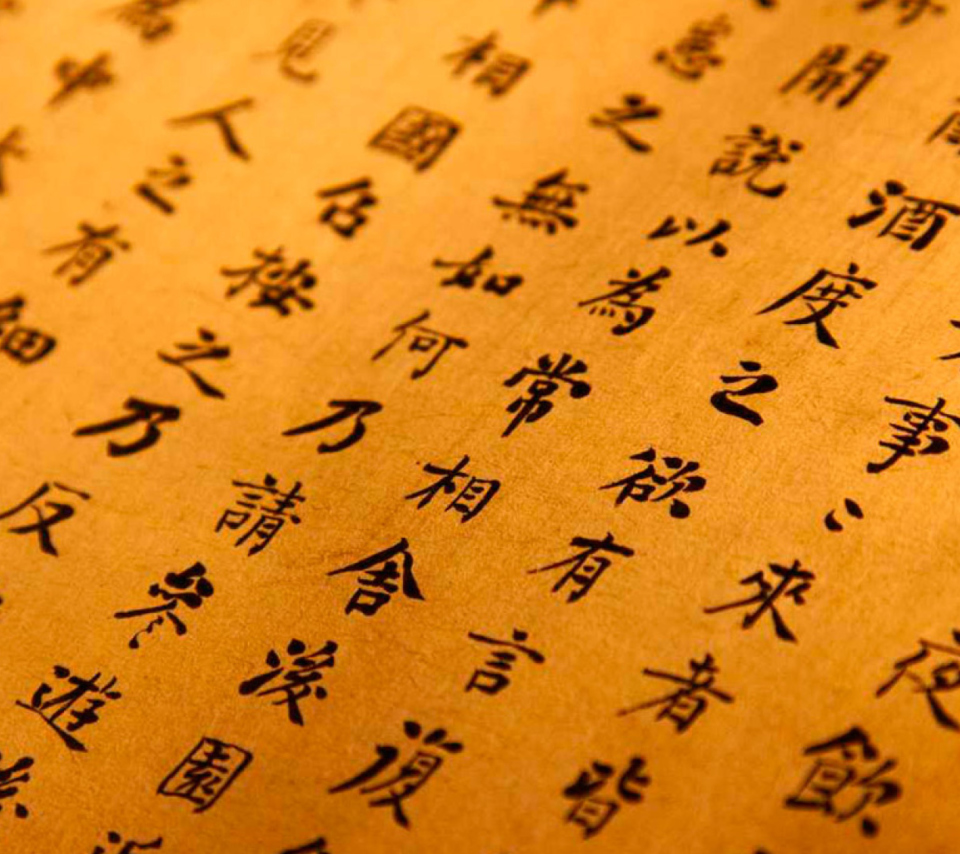 夜飲
事〻來者皆
酒度之欲有言復
開說以為常相舍後園
惡之無如何乃請參遊後
相國召按之乃反
見人之有細
中